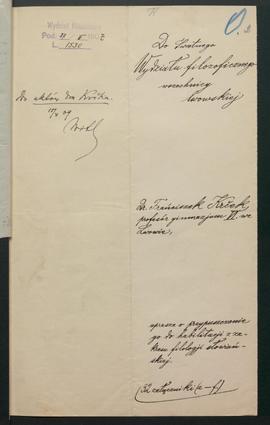 Wydział filozoficzny
Pod. 11 V 1907
L. 1530
Do aktów Dra Krčka.
Do Świetnego
Wydziału filozoficznego
wszechnicy
lwowskiej
Dr. Franciszek Krček
profesor gimnazjum VI. we
Lwowie,
uprasza o przypuszczenie
go do habilitacji z za-
kresu filologji słowiań-
skiej.
(32 załączniki a-f)